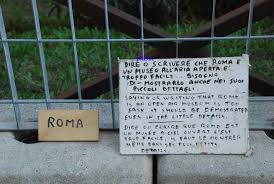 ROMA
DIRE O SCRIVERE CHE ROMA E'
UN MUSEO ALL'ARIA APERTA E'
TROPPO FACILE.. BISOGNA
DI-MOSTRARLO ANCHE NEI SUOI
PICCOLI DETTAGLI.
SAYING OR WRITING THAT ROME
IS AN OPEN AIR MUSEUM IS TOO
EASY IT SHOULD BE DEMONSTRATED
EVEN IN THE LITTLE DETAILS.
DIRE OU ECRIRE QUE ROME EST
UN MUSEE A CIEL OUVERT C'EST
TROP FACILE, IL FAUT LE
MEME DANS LES PETITS
DETAILS